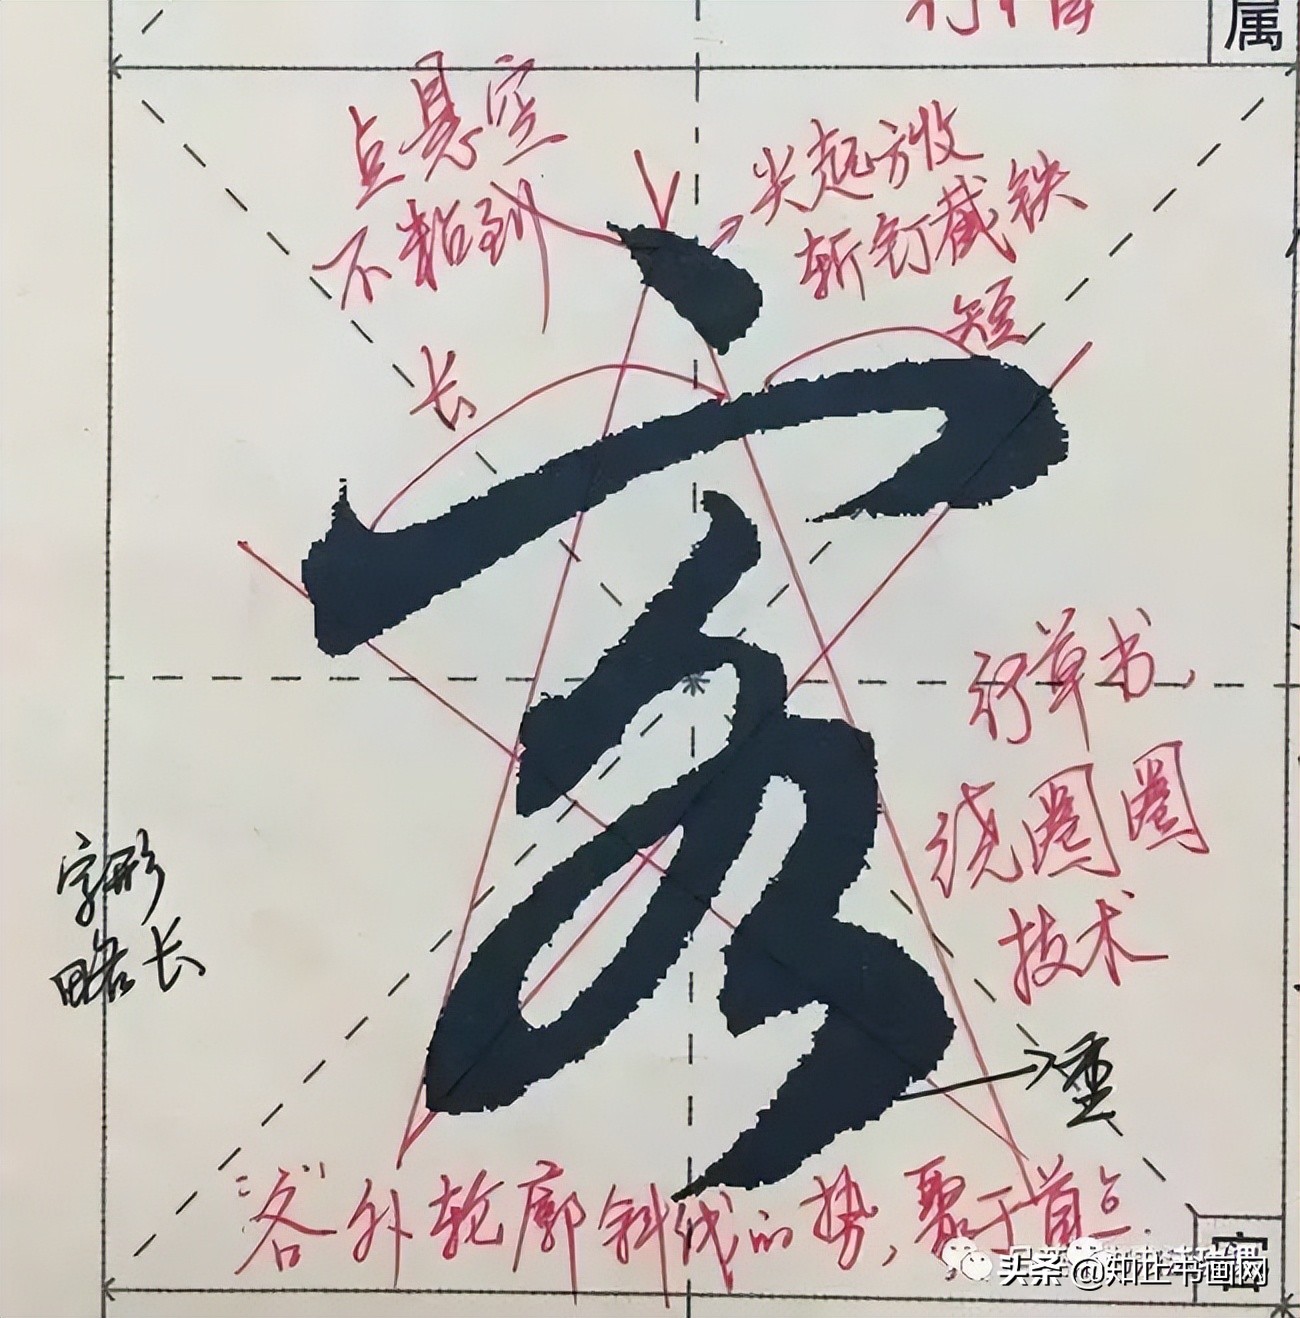 属
行楷
点悬空
不粘到
尖起方收
斩钉截铁
长
短
客
行草书,
绕圈圈
技术
字形
略长
重
"各"外轮廓斜线的势,聚于首点.
客
头条 @知止书画网